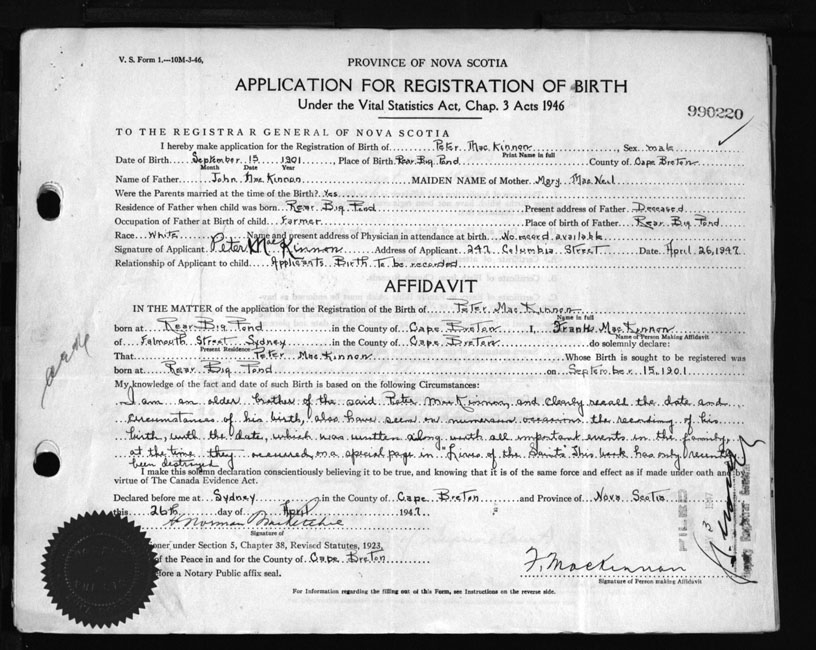 V. S. Form 1.—10M-3-46,
PROVINCE OF NOVA SCOTIA
APPLICATION FOR REGISTRATION OF BIRTH
Under the Vital Statistics Act, Chap. 3 Acts 1946
990220
TO THE REGISTRAR GENERAL OF NOVA SCOTIA
I hereby make application for the Registration of Birth of Peter MacKinnon, Sex male
Print Name in full
Date of Birth September 15 1901, Place of Birth Rear Big Pond County of Cape Breton
Month Date Year
Name of Father John MacKinnon MAIDEN NAME of Mother Mary MacNeil
Were the Parents married at the time of the Birth? Yes
Residence of Father when child was born Rear Big Pond Present address of Father Deceased
Occupation of Father at Birth of child Farmer Place of birth of Father Rear Big Pond
Race White Name and present address of Physician in attendance at birth No record available
Signature of Applicant Peter MacKinnon Address of Applicant 247 Columbia Street Date April 26, 1947
Relationship of Applicant to child Applicants Birth to be recorded
AFFIDAVIT
IN THE MATTER of the application for the Registration of the Birth of Peter MacKinnon
Name in full
born at Rear Big Pond in the County of Cape Breton I, Frank MacKinnon
Name of Person Making Affidavit
of Falmouth Street Sydney in the County of Cape Breton do solemnly declare:
Present Residence
That Peter MacKinnon Whose Birth is sought to be registered was
born at Rear Big Pond on September 15, 1901
My knowledge of the fact and date of such Birth is based on the following Circumstances:
I am an older brother of the said Peter MacKinnon, and clearly recall the date and
circumstances of his birth, also have seen on numerous occasions the recording of his
birth, with the date, which was written along with all important events in the family
at the time they occurred, on a special page in "Lives of the Saints". This book has only recently
been destroyed
I make this solemn declaration conscientiously believing it to be true, and knowing that it is of the same force and effect as if made under oath and by
virtue of The Canada Evidence Act.
Declared before me at Sydney in the County of Cape Breton and Province of Nova Scotia
this 26th day of April 1947
Norman
Signature of
oner under Section 5, Chapter 38, Revised Statutes, 1923,
of the Peace in and for the County of Cape Breton
fore a Notary Public affix seal.
F. MacKinnon
Signature of Person making Affidavit
FILED
For Information regarding the filling out of this Form, see Instructions on the reverse side.